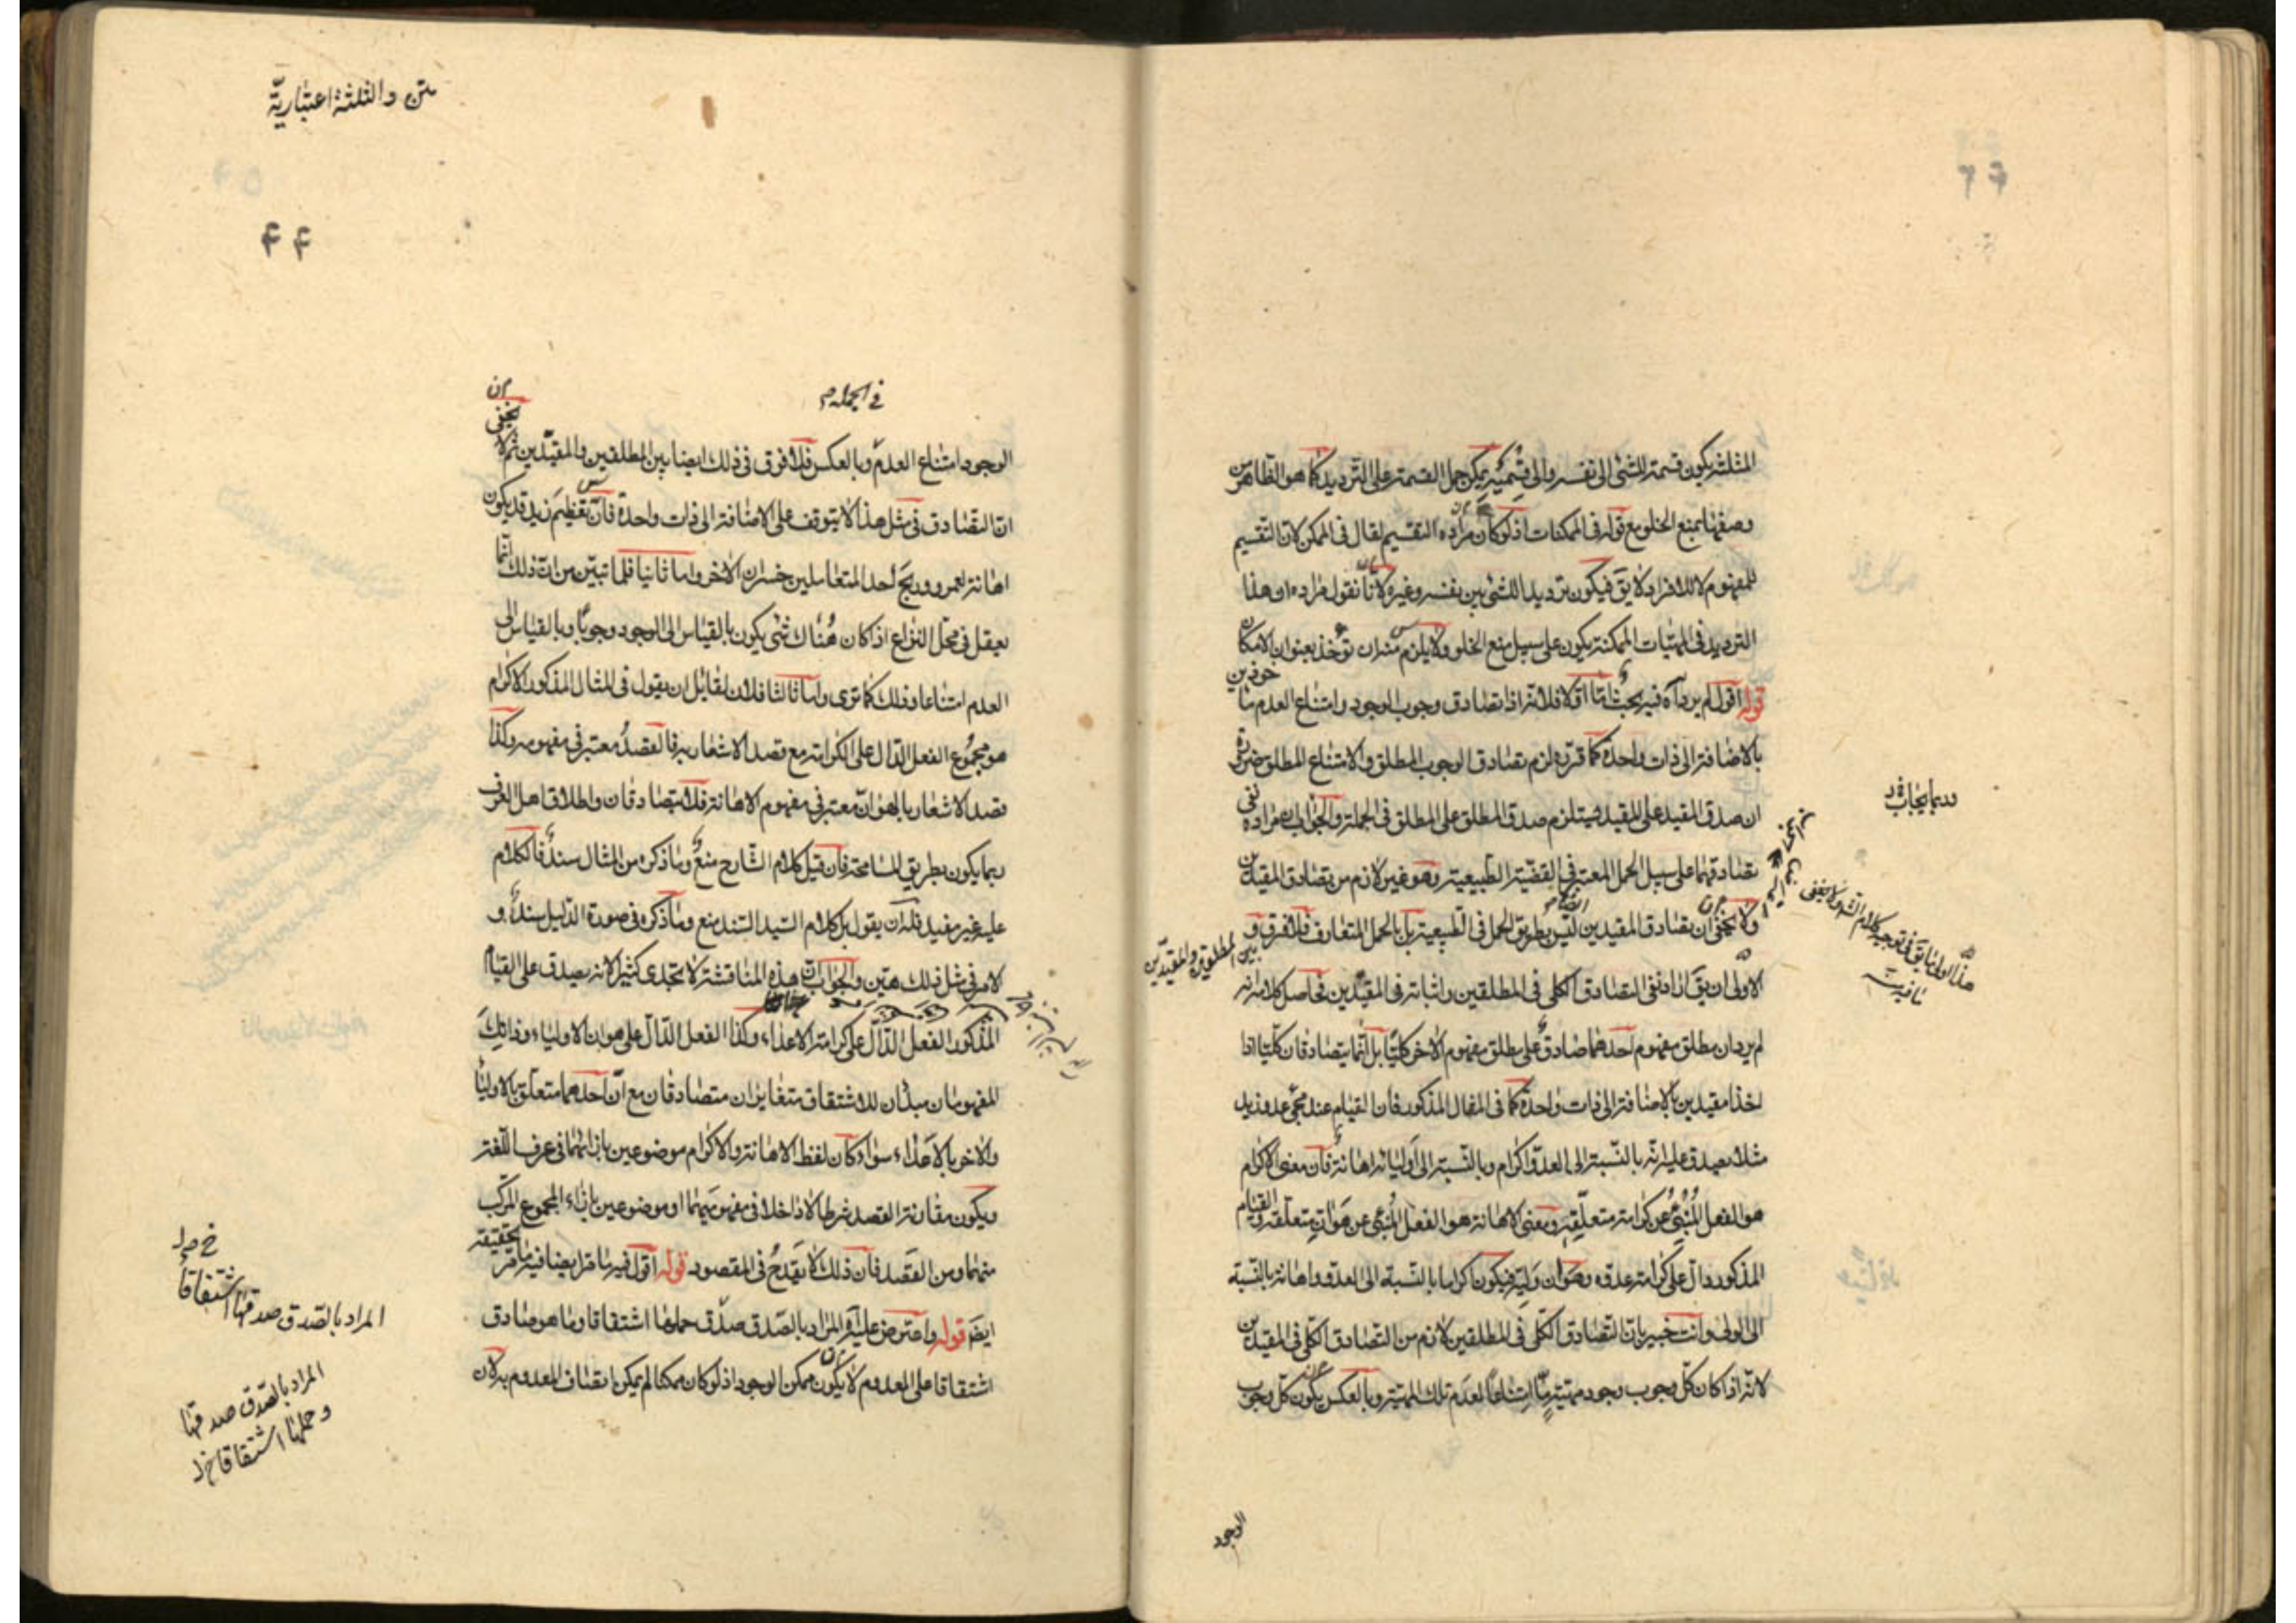 المثلثة يكون قسمة للشئ الى نفسه والى قسميه يمكن حمل القسمة على الترديد كما هو الظاهر من
وصفها بمنع الخلو مع قوله فى الممكنات اذ لو كان مراده التقسيم لقال فى الممكن لان التقسيم
للمفهوم لا للافراد لا يق فيكون ترديدا للشئ بين نفسه وغيره لانا نقول مراده ان هذا
الترديد فى المهيات الممكنة يكون على سبيل منع الخلو ولا يلزم منه ان تؤخذ بعنوان الامكان
قوله اقول لم يرد آه فيه بحث اما اولا فلانه اذا تصادق وجوب الوجود وامتناع العدم مأخوذين
بالاضافة الى ذات واحدة كما قرره لزم تصادق الوجوب المطلق والامتناع المطلق ضرورة
ان صدق المقيد على المقيد يستلزم صدق المطلق على المطلق فى الجملة والجواب ان مراده نفى
تصادقهما على سبيل الحمل المعتبر فى القضية الطبيعية وهو غير لازم من تصادق المقيدين
ولا يخفى ان تصادق المقيدين ليس بطريق الحمل فى الطبيعية بل بالحمل المتعارف فلا فرق و
بين المطلقين والمقيدين
الاولى ان يق اراد نفى التصادق الكلى فى المطلقين واثباته فى المقيدين فحاصل كلامه انه
لم يرد ان مطلق مفهوم احدهما صادق على مطلق مفهوم الاخر كليا بل انما يتصادقان كليا اذا
اخذا مقيدين بالاضافة الى ذات واحدة كما فى المثال المذكور فان القيام عند مجئ عدو زيد
مثلا يصدق عليه انه بالنسبة الى العدو اكرام وبالنسبة الى اوليائه اهانة فان معنى الاكرام
هو الفعل المنبئ عن كرامة متعلقه ومعنى الاهانة هو الفعل المنبئ عن هوان متعلقه والقيام
المذكور دال على كرامة عدوه وهوان وليه فيكون اكراما بالنسبة الى العدو واهانة بالنسبة
الى الولى وانت خبير بان التصادق الكلى فى المطلقين لازم من التصادق الكلى فى المقيدين
لانه اذا كان كل وجوب وجود مهية ما امتناعا لعدم تلك المهية وبالعكس يكون كل وجوب
الوجود
متن والثلثة اعتبارية
۴۴
فى الجملة
الوجود امتناع العدم وبالعكس فلا فرق فى ذلك ايضا بين المطلقين والمقيدين ثم لا يخفى
ان التصادق فى مثل هذا لا يتوقف على الاضافة الى ذات واحدة فان تعظيم زيد قد يكون
اهانة لعمرو وربح احد المتعاملين خسران الاخر واما ثانيا فلما تبين من ان ذلك انما
يعقل فى محل النزاع اذا كان هناك شئ يكون بالقياس الى الوجود وجوبا وبالقياس الى
العدم امتناعا وذلك كما ترى واما ثالثا فلان لقائل ان يقول فى المثال المذكور الاكرام
هو مجموع الفعل الدال على الكرامة مع قصد الاشعار به فالقصد معتبر فى مفهومه وكذا
قصد الاشعار بالهوان معتبر فى مفهوم الاهانة فلا يتصادقان واطلاق اهل العرف
ربما يكون بطريق المسامحة فان قيل كلام الشارح منع وما ذكره من المثال سند فالكلام
عليه غير مفيد فله ان يقول بل كلام السيد السند منع وما ذكره فى صورة الدليل سند و
الامر فى مثل ذلك هين والجواب ان هذه المناقشة لا تجدى كثيرا لانه يصدق على القيام
المذكور الفعل الدال على كرامة الاعداء وكذا الفعل الدال على هوان الاولياء وذانك
المفهومان مبدآن للاشتقاق متغايران متصادقان مع ان احدهما متعلق بالاولياء
والاخر بالاعداء سواء كان لفظ الاهانة والاكرام موضوعين بازائهما فى عرف اللغة
ويكون مقارنة القصد شرطا لا داخلا فى مفهوميهما او موضوعين بازاء المجموع المركب
منهما ومن القصد فان ذلك لا يقدح فى المقصود قوله اقول فيه ما مر ايضا فيه ما مر تحقيقه
ايضا قوله واعترض عليه آه المراد بالصدق صدق حملها اشتقاقا وما هو صادق
اشتقاقا على المعدوم لا يكون ممكن الوجود اذ لو كان ممكنا لم يمكن اتصاف المعدوم به لان
المراد بالصدق صدقها اشتقاقا
المراد بالصدق صدقها
وحملها اشتقاقا